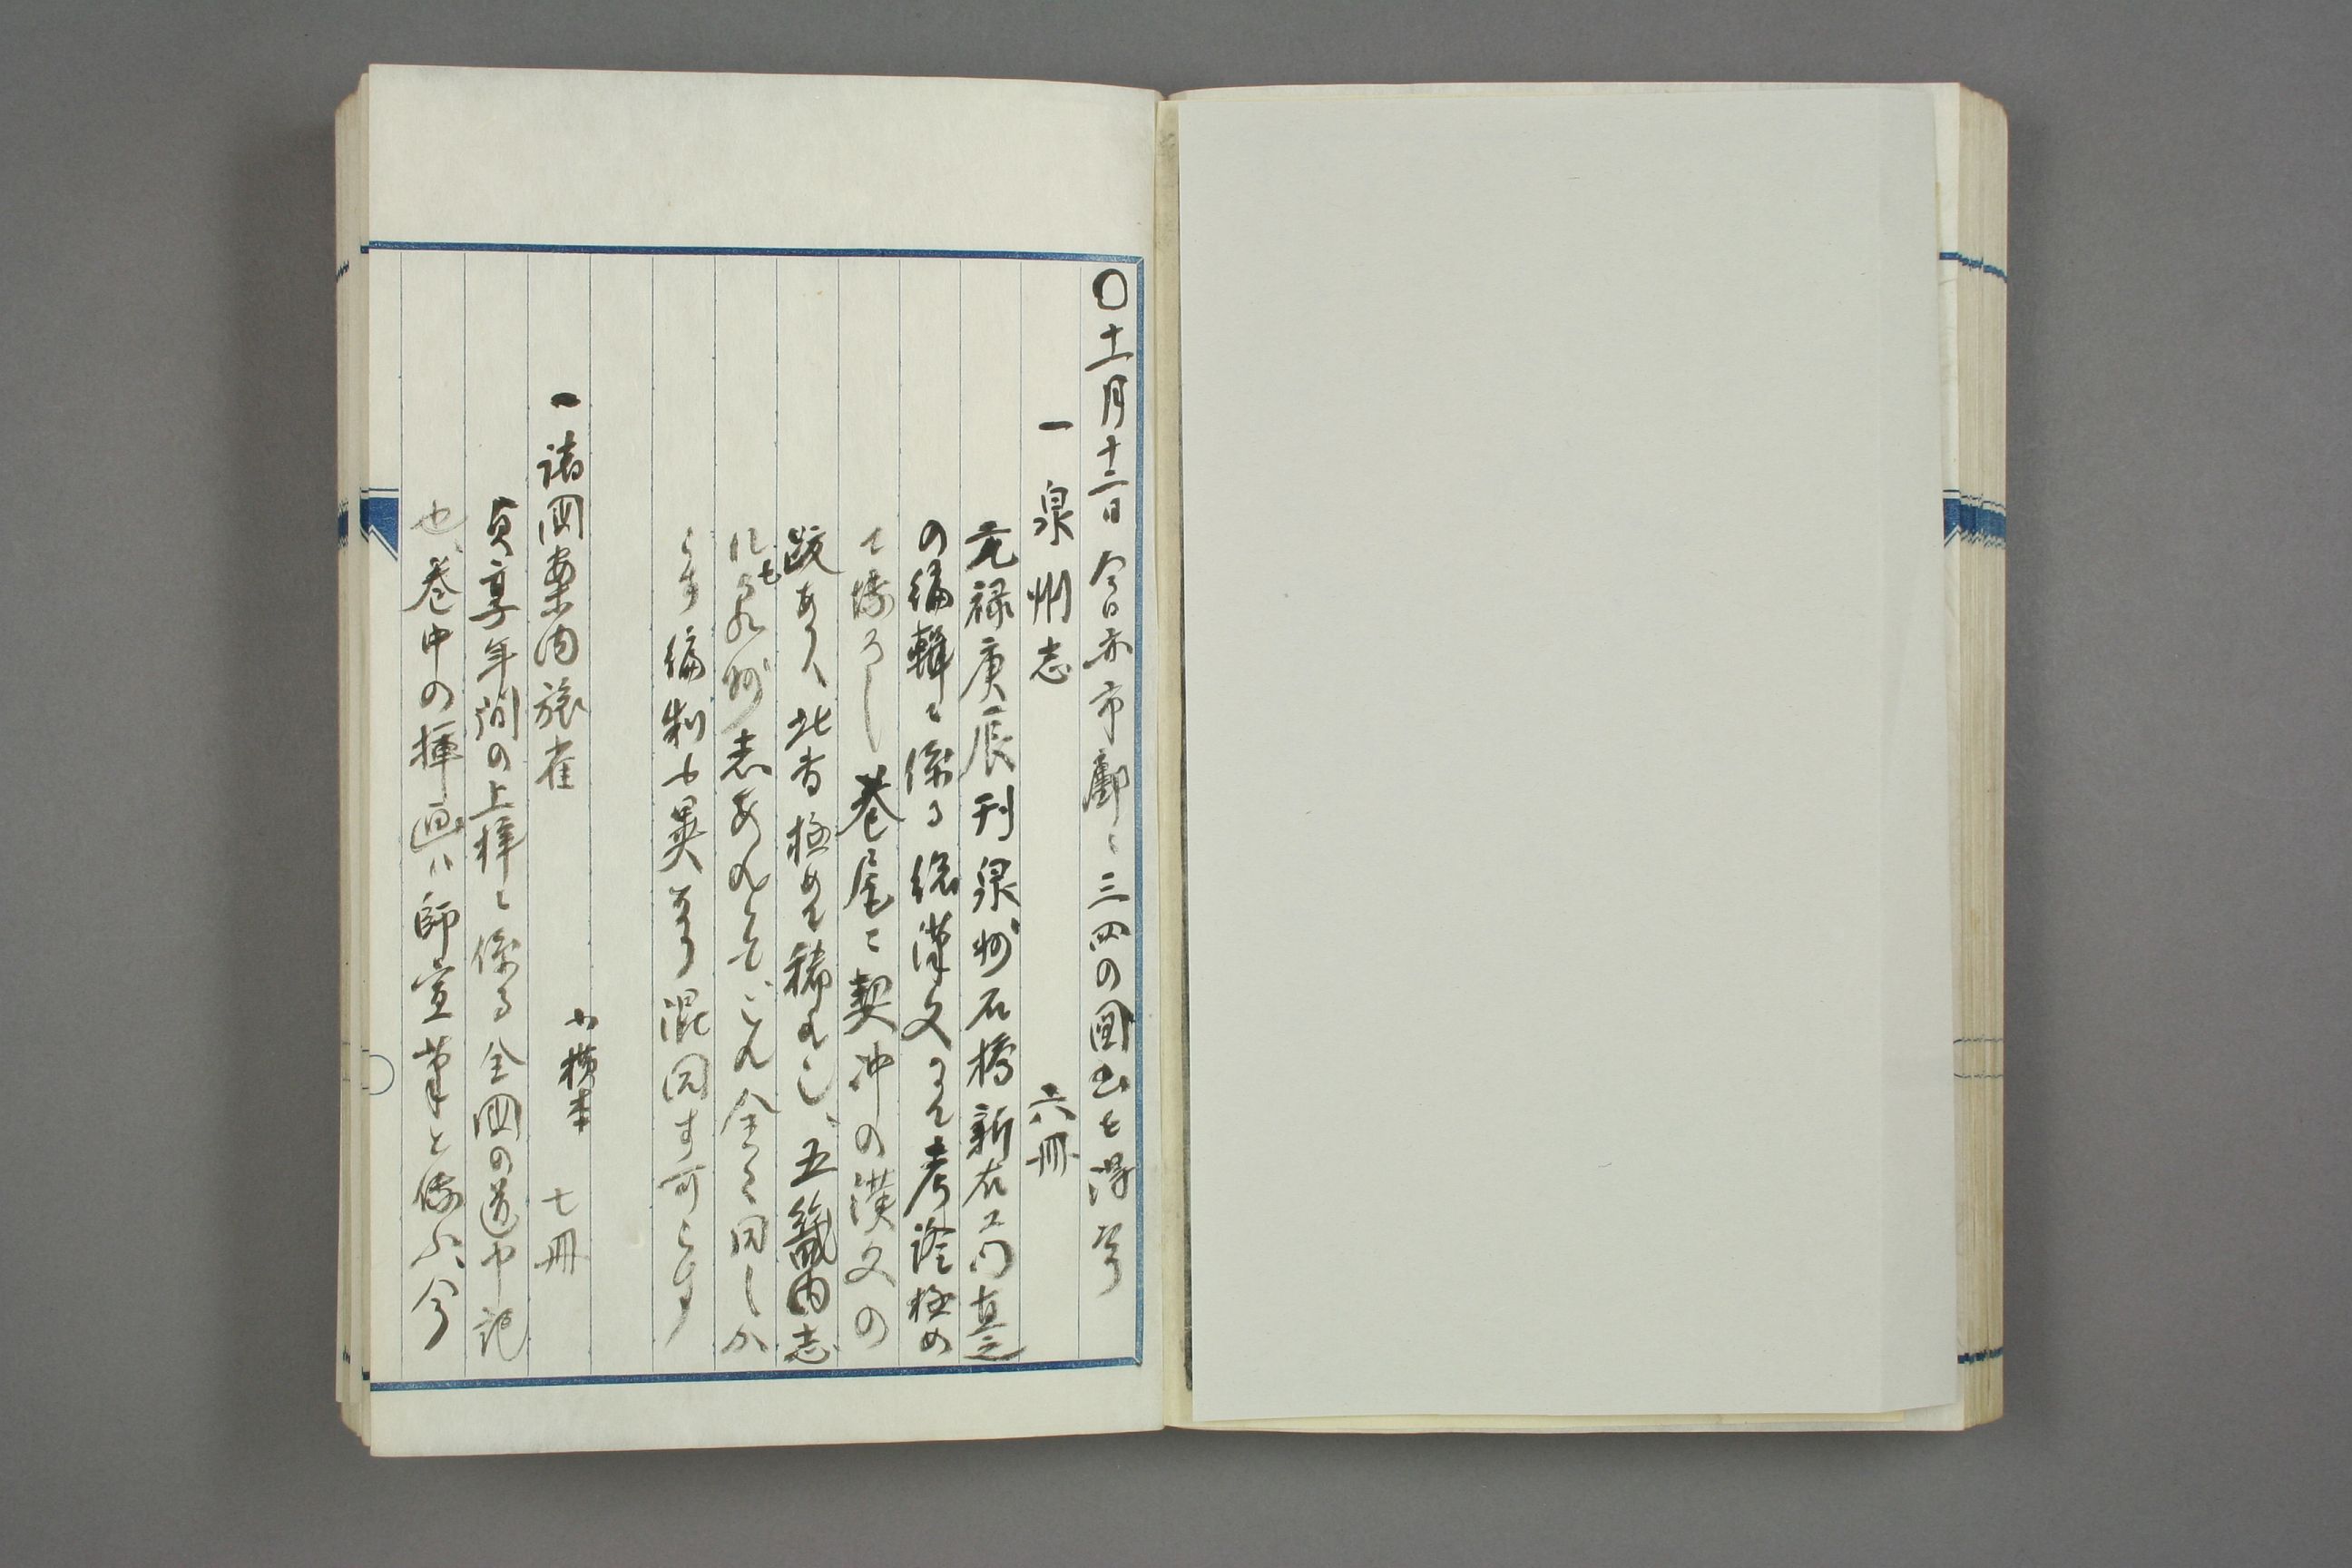 〇十一月十二日今日亦市廛ニ三四の図書を得たり
一 泉州志 六冊
元禄庚辰刊泉州石橋新右エ門直之
の編輯ニ係る総漢文にて考證極め
て博ろし 巻尾ニ契沖の漢文の
跋あり、此書極めて稀れ也、五畿内志
にも泉州志あれとも、これ全く同しか
らす 編制も異なり混同す可らす
一諸国案内旅雀 小横本 七冊
貞享年間の上梓ニ係る全国の道中記
也、巻中の挿画ハ師宣筆と傳ふ、今